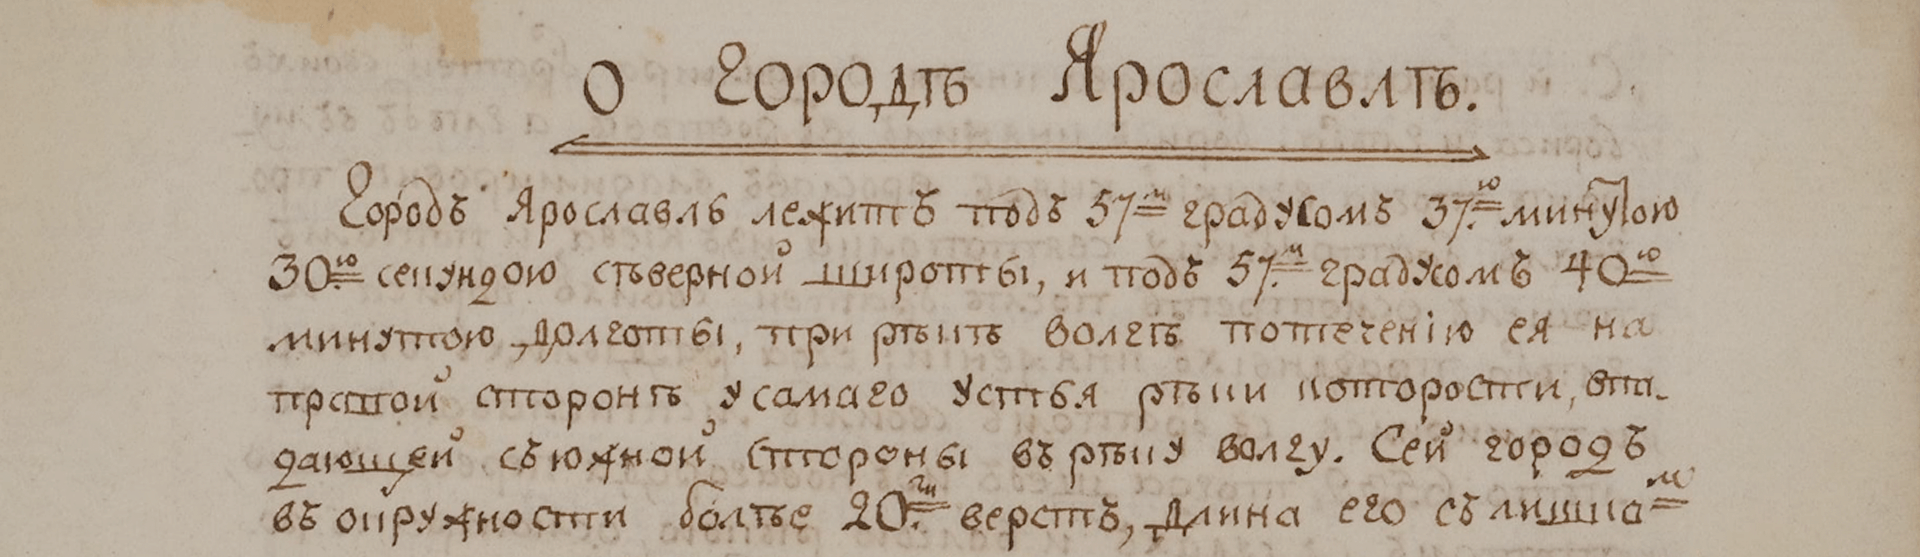 О городѣ Ярославлѣ.
Городъ Ярославль лежитъ подъ 57.м градусомъ 37.ю минутою
30ю секундою сѣверной широты, и подъ 57.м градусомъ 40ю
минутою долготы, при рѣкѣ волгѣ потеченію ея на
правой сторонѣ усамаго устья рѣки которости, впа-
дающей съюжной стороны въ рѣку волгу. Сей городъ
въ окружности болѣе 20.ти верстъ, длина его слишкомъ